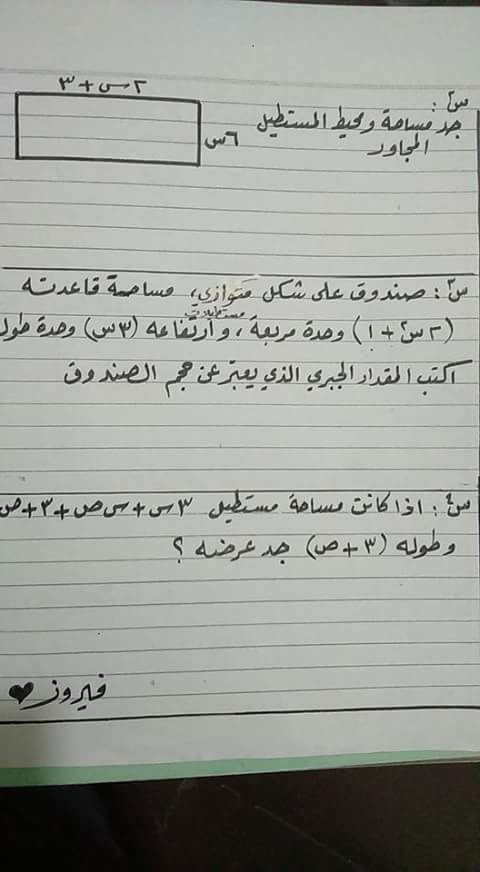 س٢:
جد مساحة ومحيط المستطيل
المجاور
٢س+٣
٦س
س٣: صندوق على شكل متوازي مستطيلات، مساحة قاعدته
(٢س٢+١) وحدة مربعة، وارتفاعه (٣س) وحدة طول
اكتب المقدار الجبري الذي يعبّر عن حجم الصندوق
س٤: اذا كانت مساحة مستطيل ٣س+س ص+٣+ص
وطوله (٣+ص) جد عرضه ؟
فيروز ♥